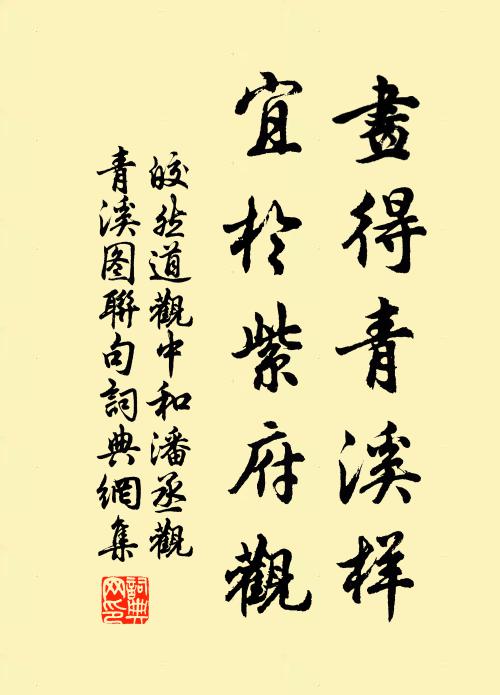 畫得青溪样
宜於紫府觀
皎然道觀中和潘丞觀
青溪图聯句詞典網集